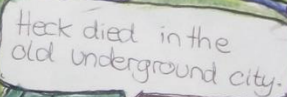 Heck died in the
old underground city.